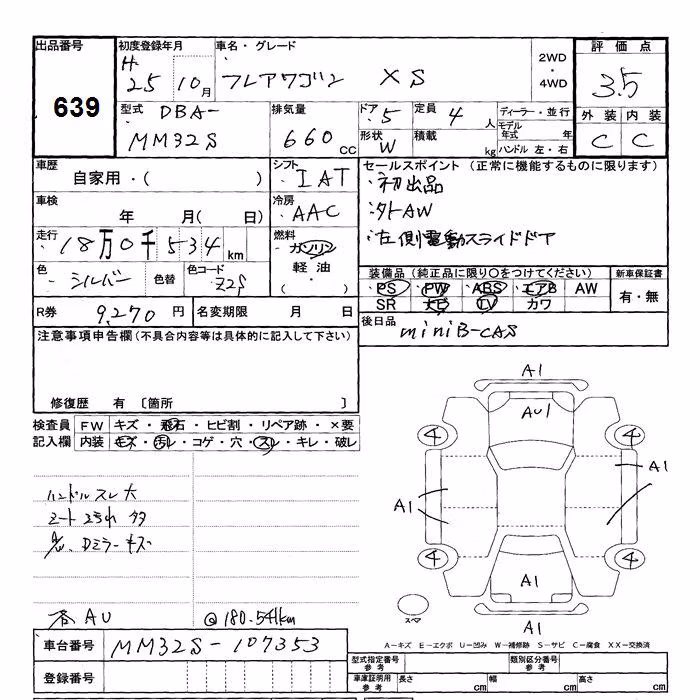 出品番号
639
初度登録年月
H.
25 10月
車名・グレード
フレアワゴン XS
2WD
・
4WD
評価点
3.5
外装 内装
C C
型式 DBA-
MM32S
排気量
660 CC
ドア 5
定員 4 人
形状 W
積載 kg
ディーラー・並行
モデル年式 年
ハンドル 左・右
車歴
自家用・( )
シフト
IAT
セールスポイント (正常に機能するものに限ります)
・初出品
・社外AW
・左側電動スライドドア
車検
年 月( 日)
冷房
AAC
走行
18万0千534km
燃料
ガソリン
軽油
・( )
色
シルバー
色替
色コード
Z2S
装備品 (純正品に限り○をつけてください)
PS PW ABS エアB AW
SR ナビ TV カワ
新車保証書
有・無
R券 9,270円
名変期限 月 日
後日品
miniB-CAS
注意事項申告欄(不具合内容等は具体的に記入して下さい)
修復歴 有 〔箇所 〕
検査員記入欄
FW キズ・飛石・ヒビ割・リペア跡・×要
内装 キズ・汚レ・コゲ・穴・スレ・キレ・破レ
ハンドルスレ大
シート汚れ 多
Dミラーキズ
各AU
@180.541km
A1
AU1
4 4
A1
A1
4 4
A1
A1
スペア
A−キズ E−エクボ U−凹み W−補修跡 S−サビ C−腐食 XX−交換済
車台番号 MM32S-107353
登録番号
型式指定番号
参考
類別区分番号
参考
車庫証明用
参考
長さ cm
幅 cm
高さ cm